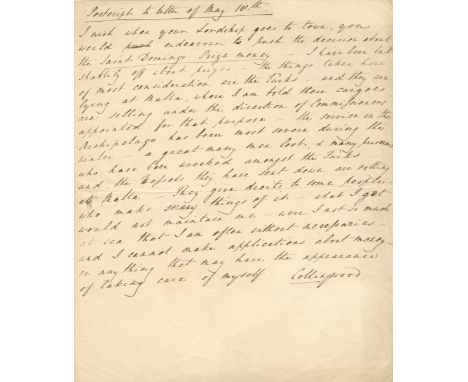 Postscript to letter of May 10th
I wish when your Lordship goes to town, you
would push endeavour to push the decision about
the Saint Domingo Prize money – I have been but
shabbily off about prizes – the things taken here
of most consideration are the Turks – and they are
lying at Malta, where I am told their cargoes
are selling under the direction of Commissioners
appointed for that purpose – the service in the
Archipelago has been most severe during the
winter – a great many men lost, & many prisoners
who have been wrecked amongst the Turks
and the Vessels they have sent down are rotting
at Malta – They give droits to some people
who make things of it – what I get
would not maintain me – were I not so much
at sea that I am often without necessaries –
and I cannot make applications about money
or any thing that may have the appearance
of taking care of myself Collingwood